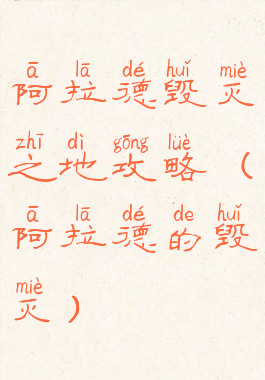 ā lā dé huǐ miè
阿拉德毁灭
zhī dì gōng lüè
之地攻略（
ā lā dé de huǐ
阿拉德的毁
miè
灭）